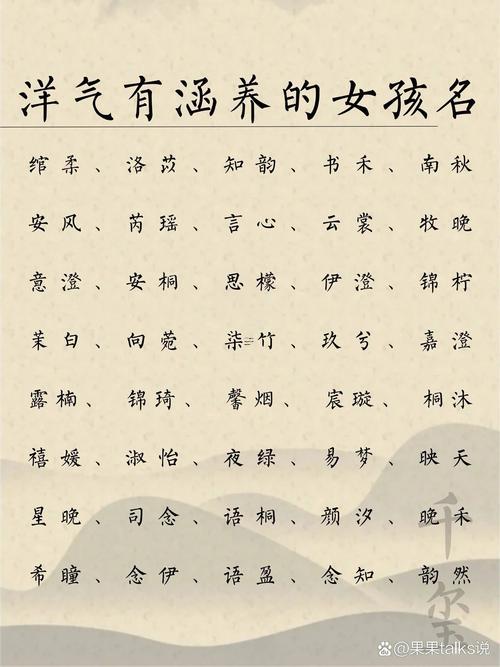 洋气有涵养的女孩名
绾柔、洛苡、知韵、书禾、南秋
安风、芮瑶、言心、云裳、牧晚
意澄、安桐、思檬、伊澄、锦柠
茉白、向菀、柒竹、玖兮、嘉澄
露楠、锦琦、馨烟、宸璇、桐沐
禧媛、淑怡、夜绿、易梦、映天
星晚、司念、语桐、颜汐、晚禾
希瞳、念伊、语盈、念知、韵然
千玺
@果果talks说